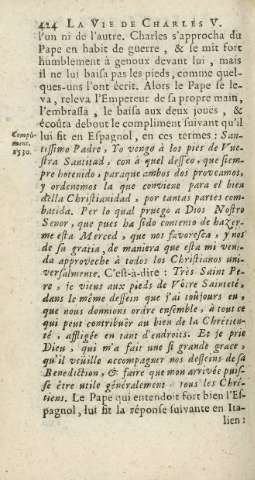 424 LA VIE DE CHARLES V.
l'un ni de l'autre. Charles s'approcha du
Pape en habit de guerre, & se mit fort
humblement à genoux devant lui, mais
il ne lui baisa pas les pieds, comme quel-
ques-uns l'ont écrit. Alors le Pape se le-
va, releva l'Empereur de sa propre main,
l'embrassa, le baisa aux deux joües, &
écoûta debout le compliment suivant qu'il
Compli-
ment.
1530.
lui fit en Espagnol, en ces termes: San-
tissimo Padre, Yo vengo à los pies de Vue-
stra Santitad, con à quel desseo, que siem-
pre hotenido, paraque ambos dos provcamos,
y ordenemos la que conviene para el bien
della Christianidad, por tantas partes com-
batida. Per lo qual pruego a Dios Nostro
Senor, que pues ha sido contento de hazer-
me esta Merced, que nos favoresca, y nos
de su gratia, de maniera que esta mi veni-
da approveche à todos los Christianos uni-
versalmente. C'est-à-dire: Très Saint Pe-
re, je viens aux pieds de Vôtre Sainteté,
dans le même dessein que j'ai toûjours eu,
que nous donnions ordre ensemble, à tout ce
qui peut contribuër au bien de la Chrétien-
té, affligée en tant d'endroits. Et je prie
Dieu, qui m'a fait une si grande grace,
qu'il veüille accompagner nos desseins de sa
Benediction, & faire que mon arrivée puis-
se être utile généralement à tous les Chré-
tiens. Le Pape qui entendoit fort bien l'Es-
pagnol, lui fit la réponse suivante en Ita-
lien: